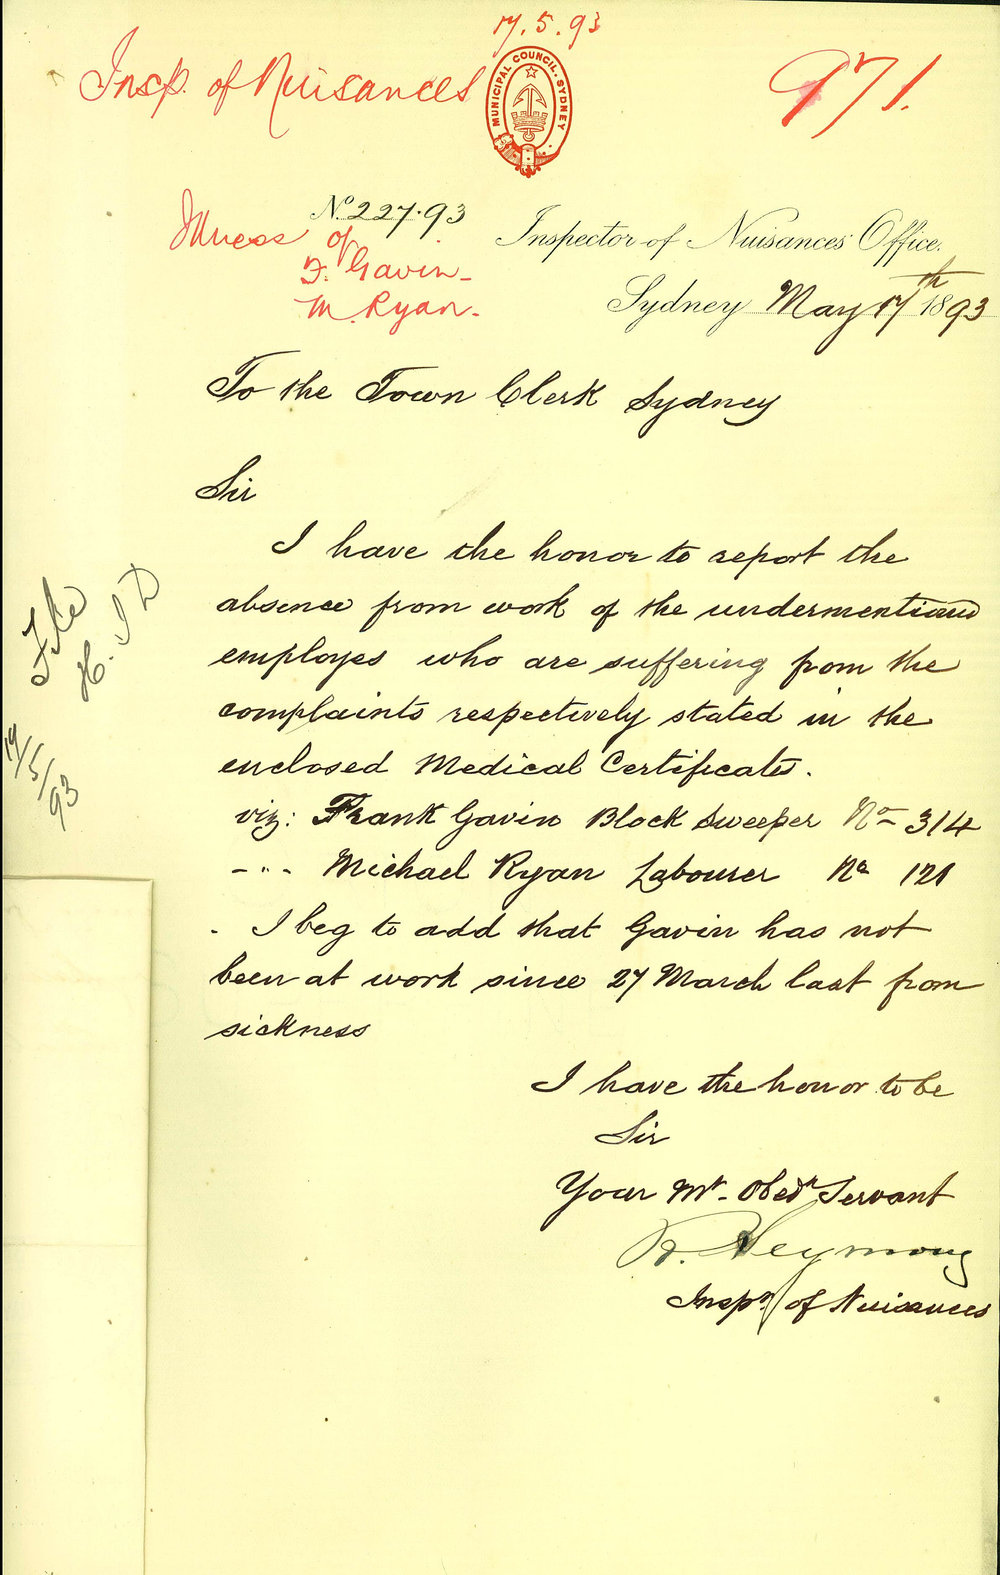 17.5.93
Insp. of Nuisances
MUNICIPAL COUNCIL. SYDNEY
971.
No. 227.93
Illness of
F. Gavin
M. Ryan.
Inspector of Nuisances' Office.
Sydney May 17th 1893
To the Town Clerk Sydney
Sir
I have the honor to report the
absence from work of the undermentioned
employes who are suffering from the
complaints respectively stated in the
enclosed Medical Certificates.
viz: Frank Gavin Block Sweeper No 314
- " - Michael Ryan Labourer No 121
. I beg to add that Gavin has not
been at work since 27 March last from
sickness
I have the honor to be
Sir
Your Mt. Obedt Servant
R. Seymour
Inspr of Nuisances
File
19/5/93